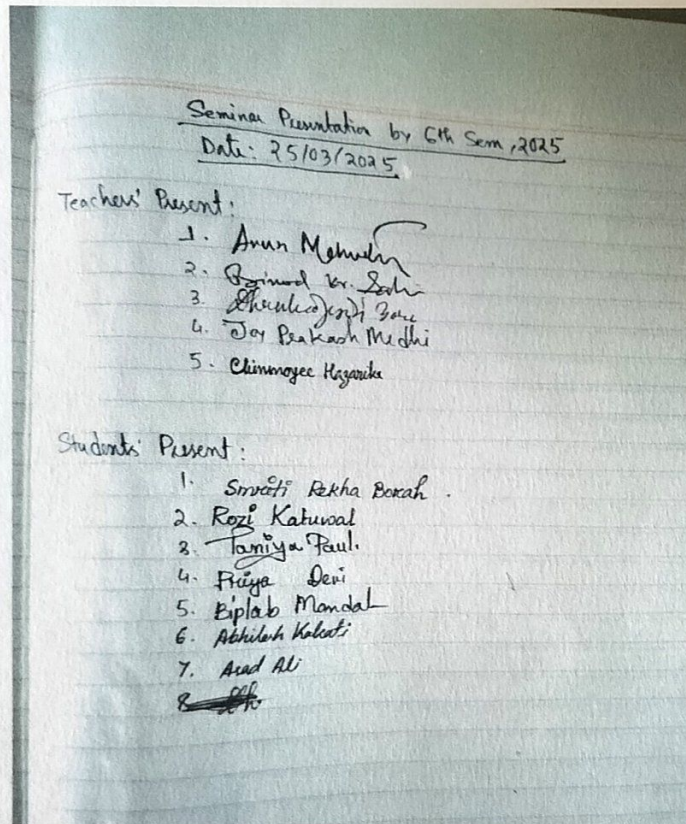 Seminar Presentation by 6th Sem, 2025
Date: 25/03/2025
Teachers' Present:
1. Arun
2. Kr.
3.
4. Joy Prakash Medhi
5. Chinmoyee Hazarika
Students' Present:
1. Smriti Rekha Borah.
2. Rozi Katuwal
3. Taniya Paul.
4. Priya Devi
5. Biplab Mandal
6. Abhilash Kalcati
7. Asad Ali
8